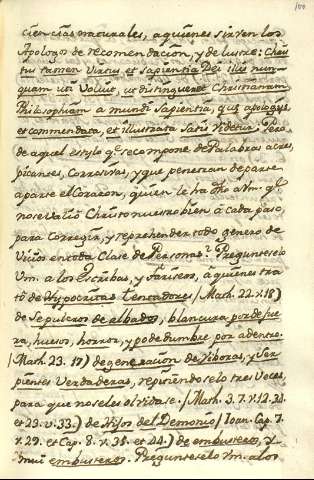 100
ciencias naturales, a quienes sirven los
Apologos de recomendación, y de lustre: Chris
tus tamen Virtus et Sapientia Dei illis nun
quam uti Voluit, ut distingueret Christianam
Philosophiam a mundi Sapientia, quæ apologis
et commendata, et illustrata satis videtur. Pero
de aquel estilo q.e se compone de Palabras acres,
picantes, Corrosivas, y que penetran de parte
a parte el Corazon, quien le ha dho a Vm. q.e
no se valió Christo nuestro bien à cada paso
para Corregir, y reprehender todo genero de
Vicios en toda Clase de Personas? Pregunteselo
Vm. a los Escribas, y Fariseos, à quienes tra
tó de Hypocritas tentadores (Math. 22. v. 18)
de Sepulcros de albados, blancura por defue
ra, huesos, horror, y podedumbre por adentro.
(Math. 23. 17) de generacion de Viboras, y Ser
pientes Verdaderas, repitiendoselo tres Veces,
para que no se les olvidase. (Math. 3. 7. v. 12. 34.
et 23. v. 33.) de Hijos del Demonio (Ioan. Cap. 7.
v. 29. et Cap. 8. v. 35. et 44.) de embusteros, y
mui embusteros. Pregunteselo Vm. a los